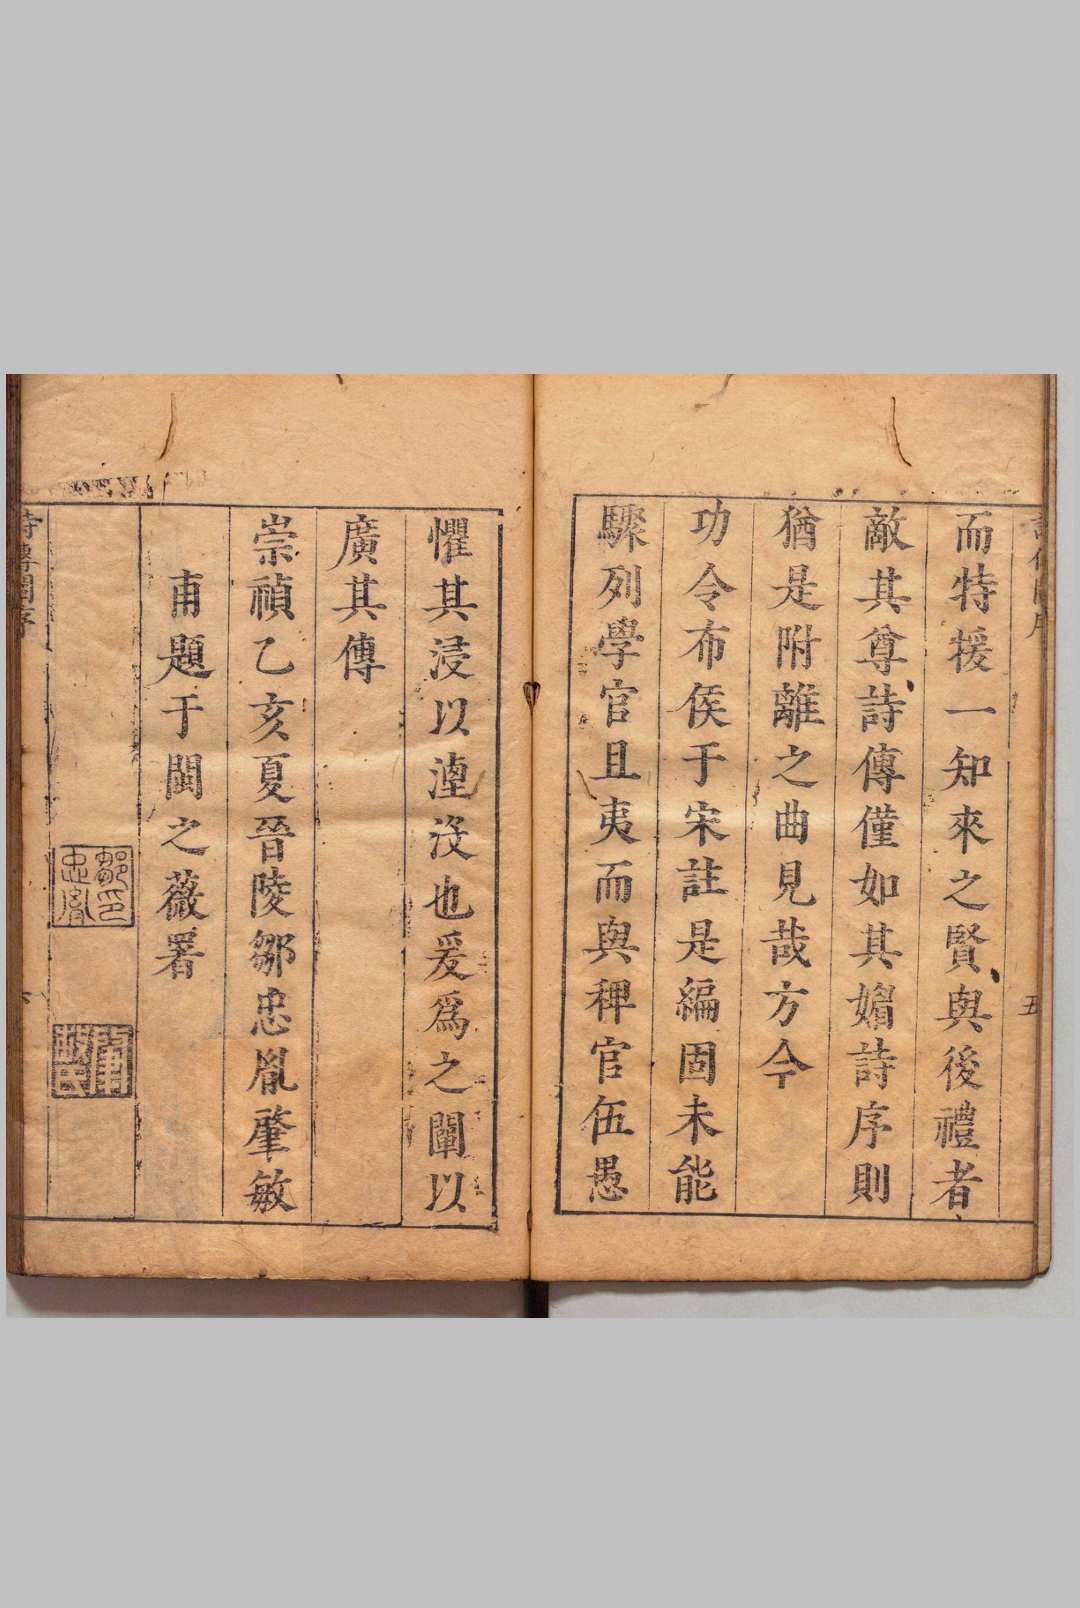 而特援一知來之賢與後禮者
敵其尊詩傳僅如其媚詩序則
猶是附離之曲見哉方今
功令布侯于宋註是編固未能
驟列學官且夷而與稗官伍愚
五
懼其浸以湮沒也爰爲之闡以
廣其傳
崇禎乙亥夏晉陵鄒忠胤肇敏
甫題于閩之薇署
鄒忠胤印
詩傳闡序